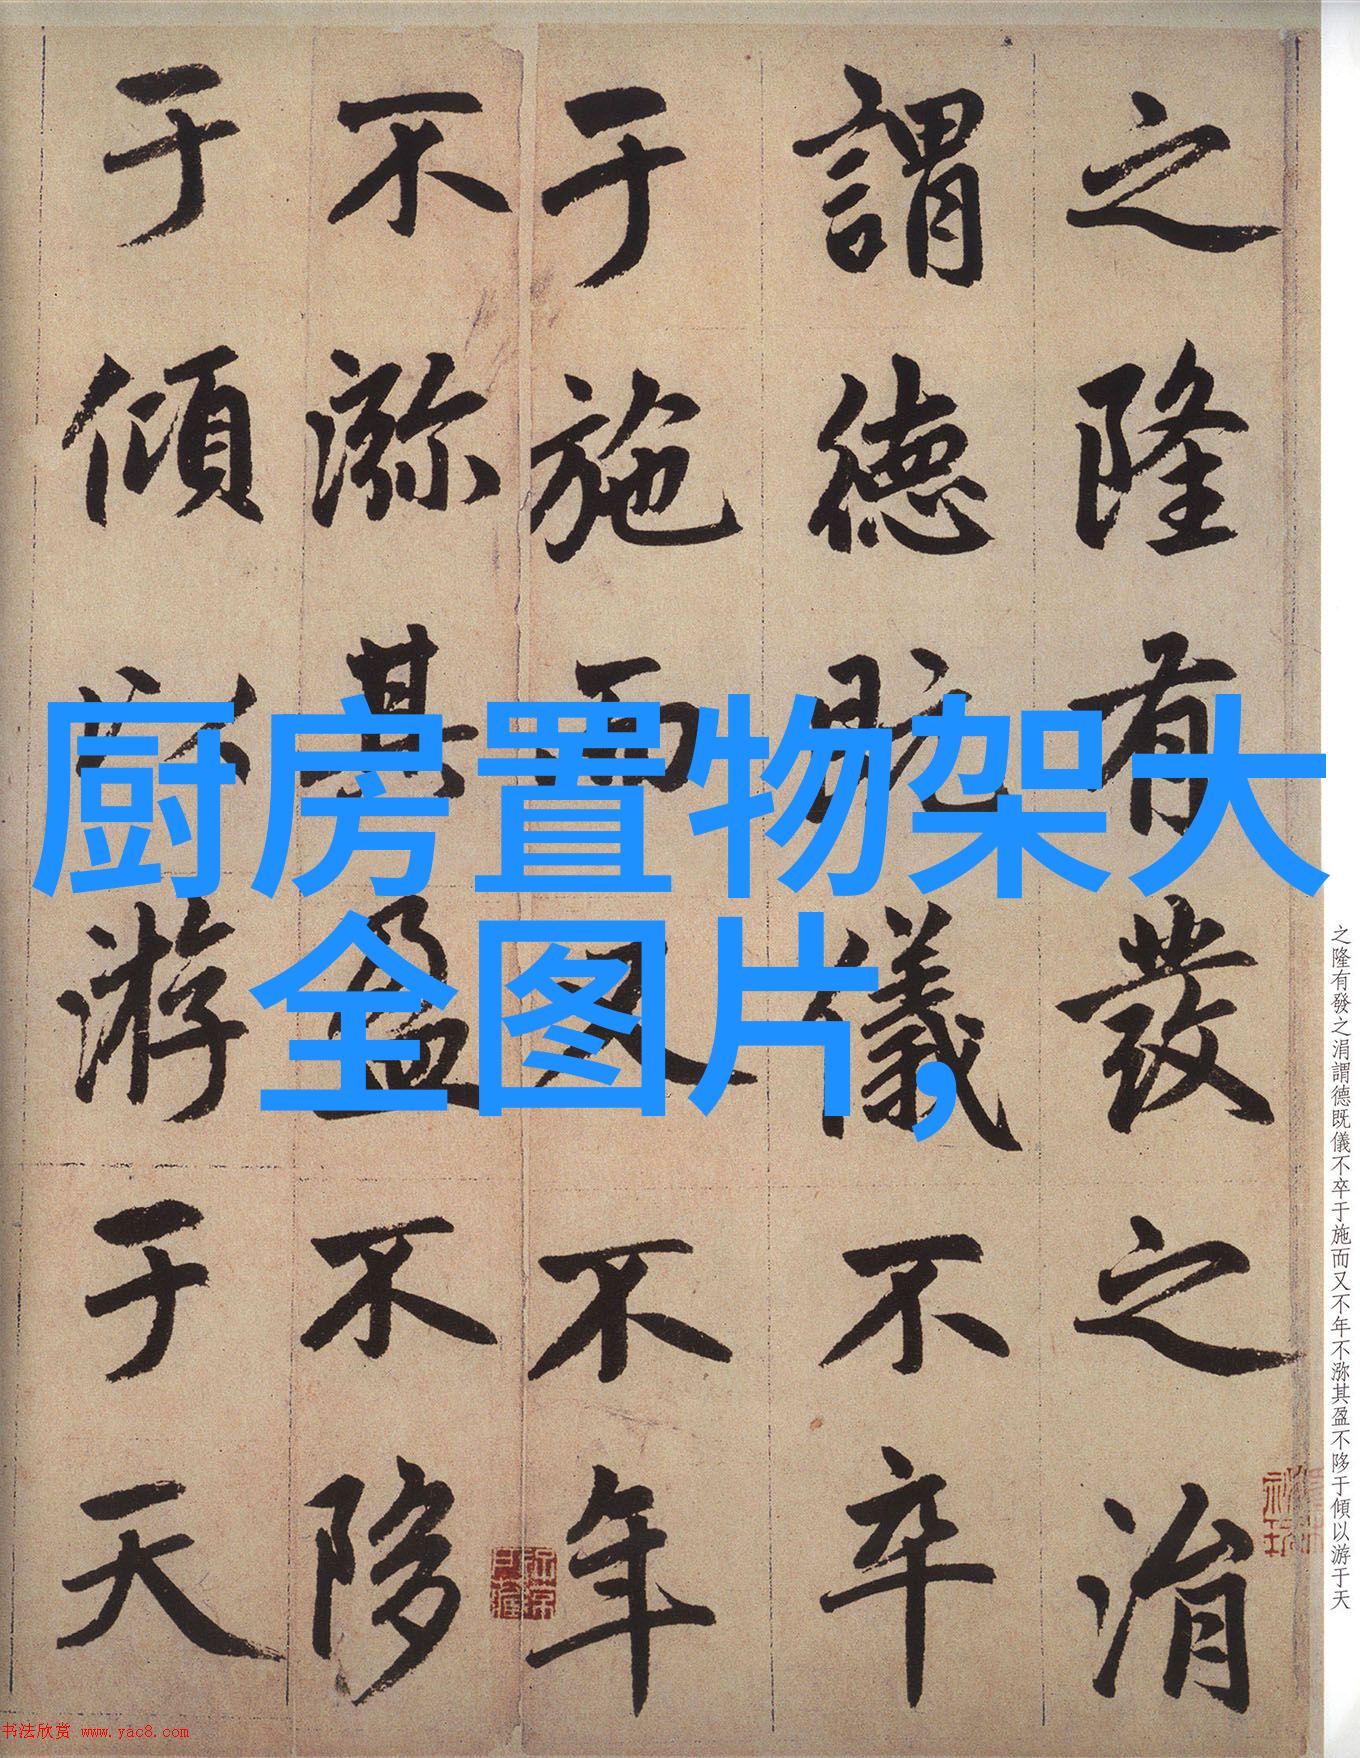 之隆有發之涓
謂德既儀不卒
于施而又不年
不㳽其盈不陊
于傾以游于天
厨房置物架大
全图片,
之隆有發之涓謂德既儀不卒于施而又不年不㳽其盈不陊于傾以游于天
书法欣赏 www.yac8.com